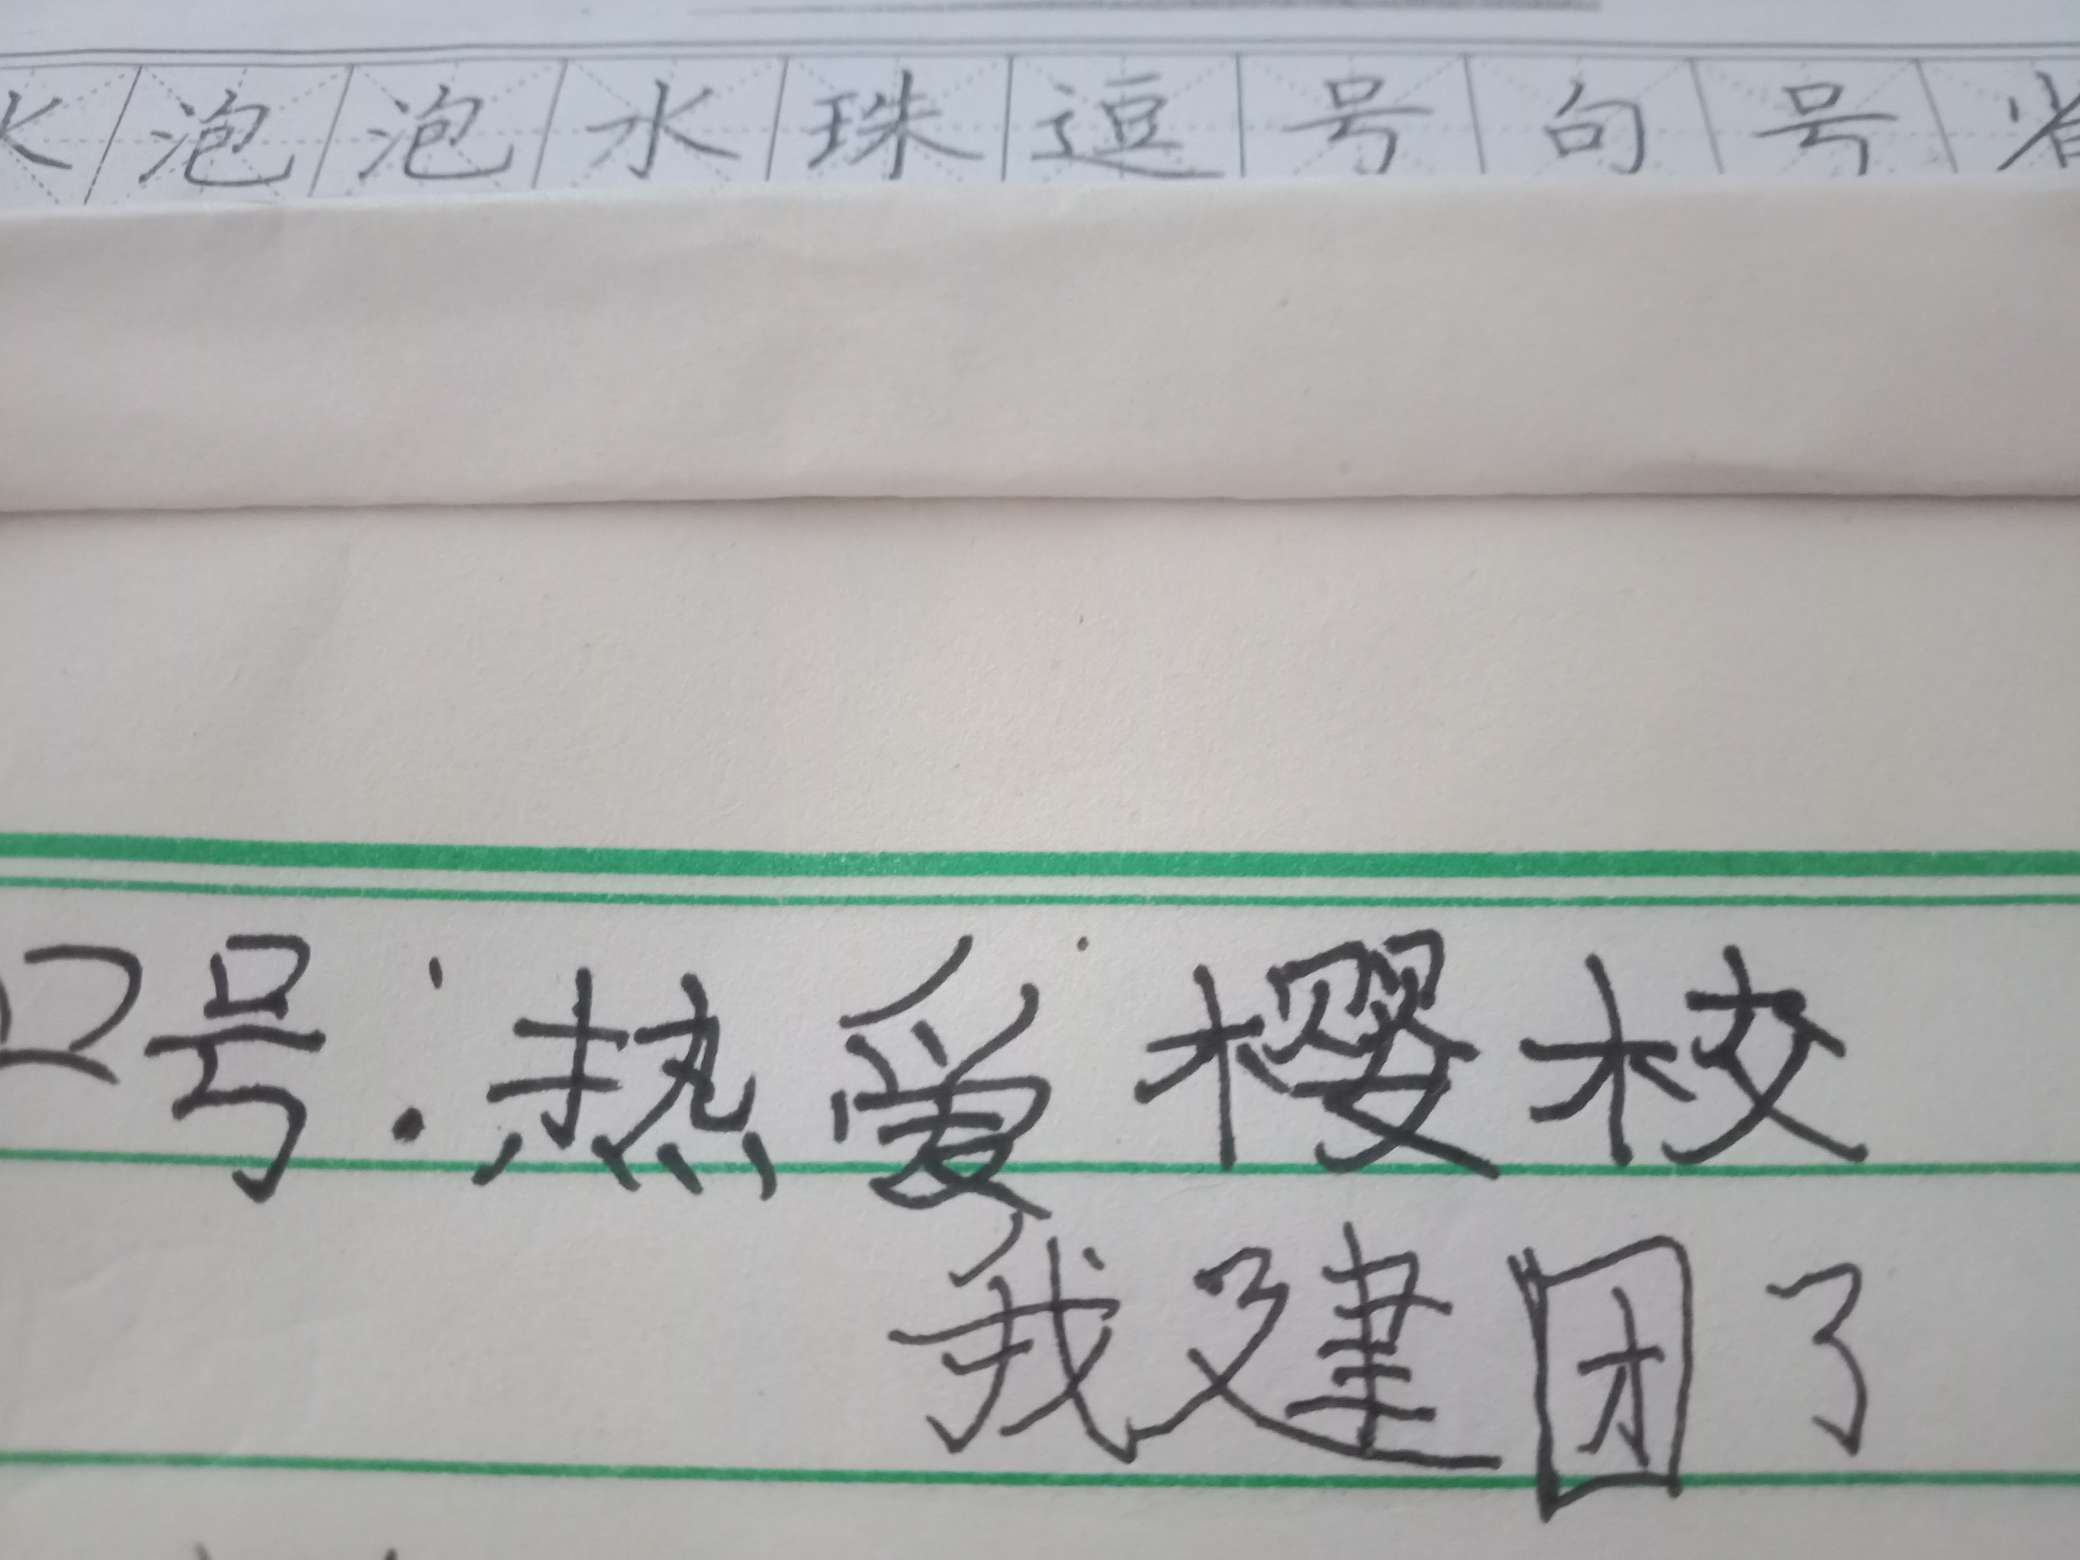 水泡泡水珠逗号句号省
口号:热爱樱校
我建团了